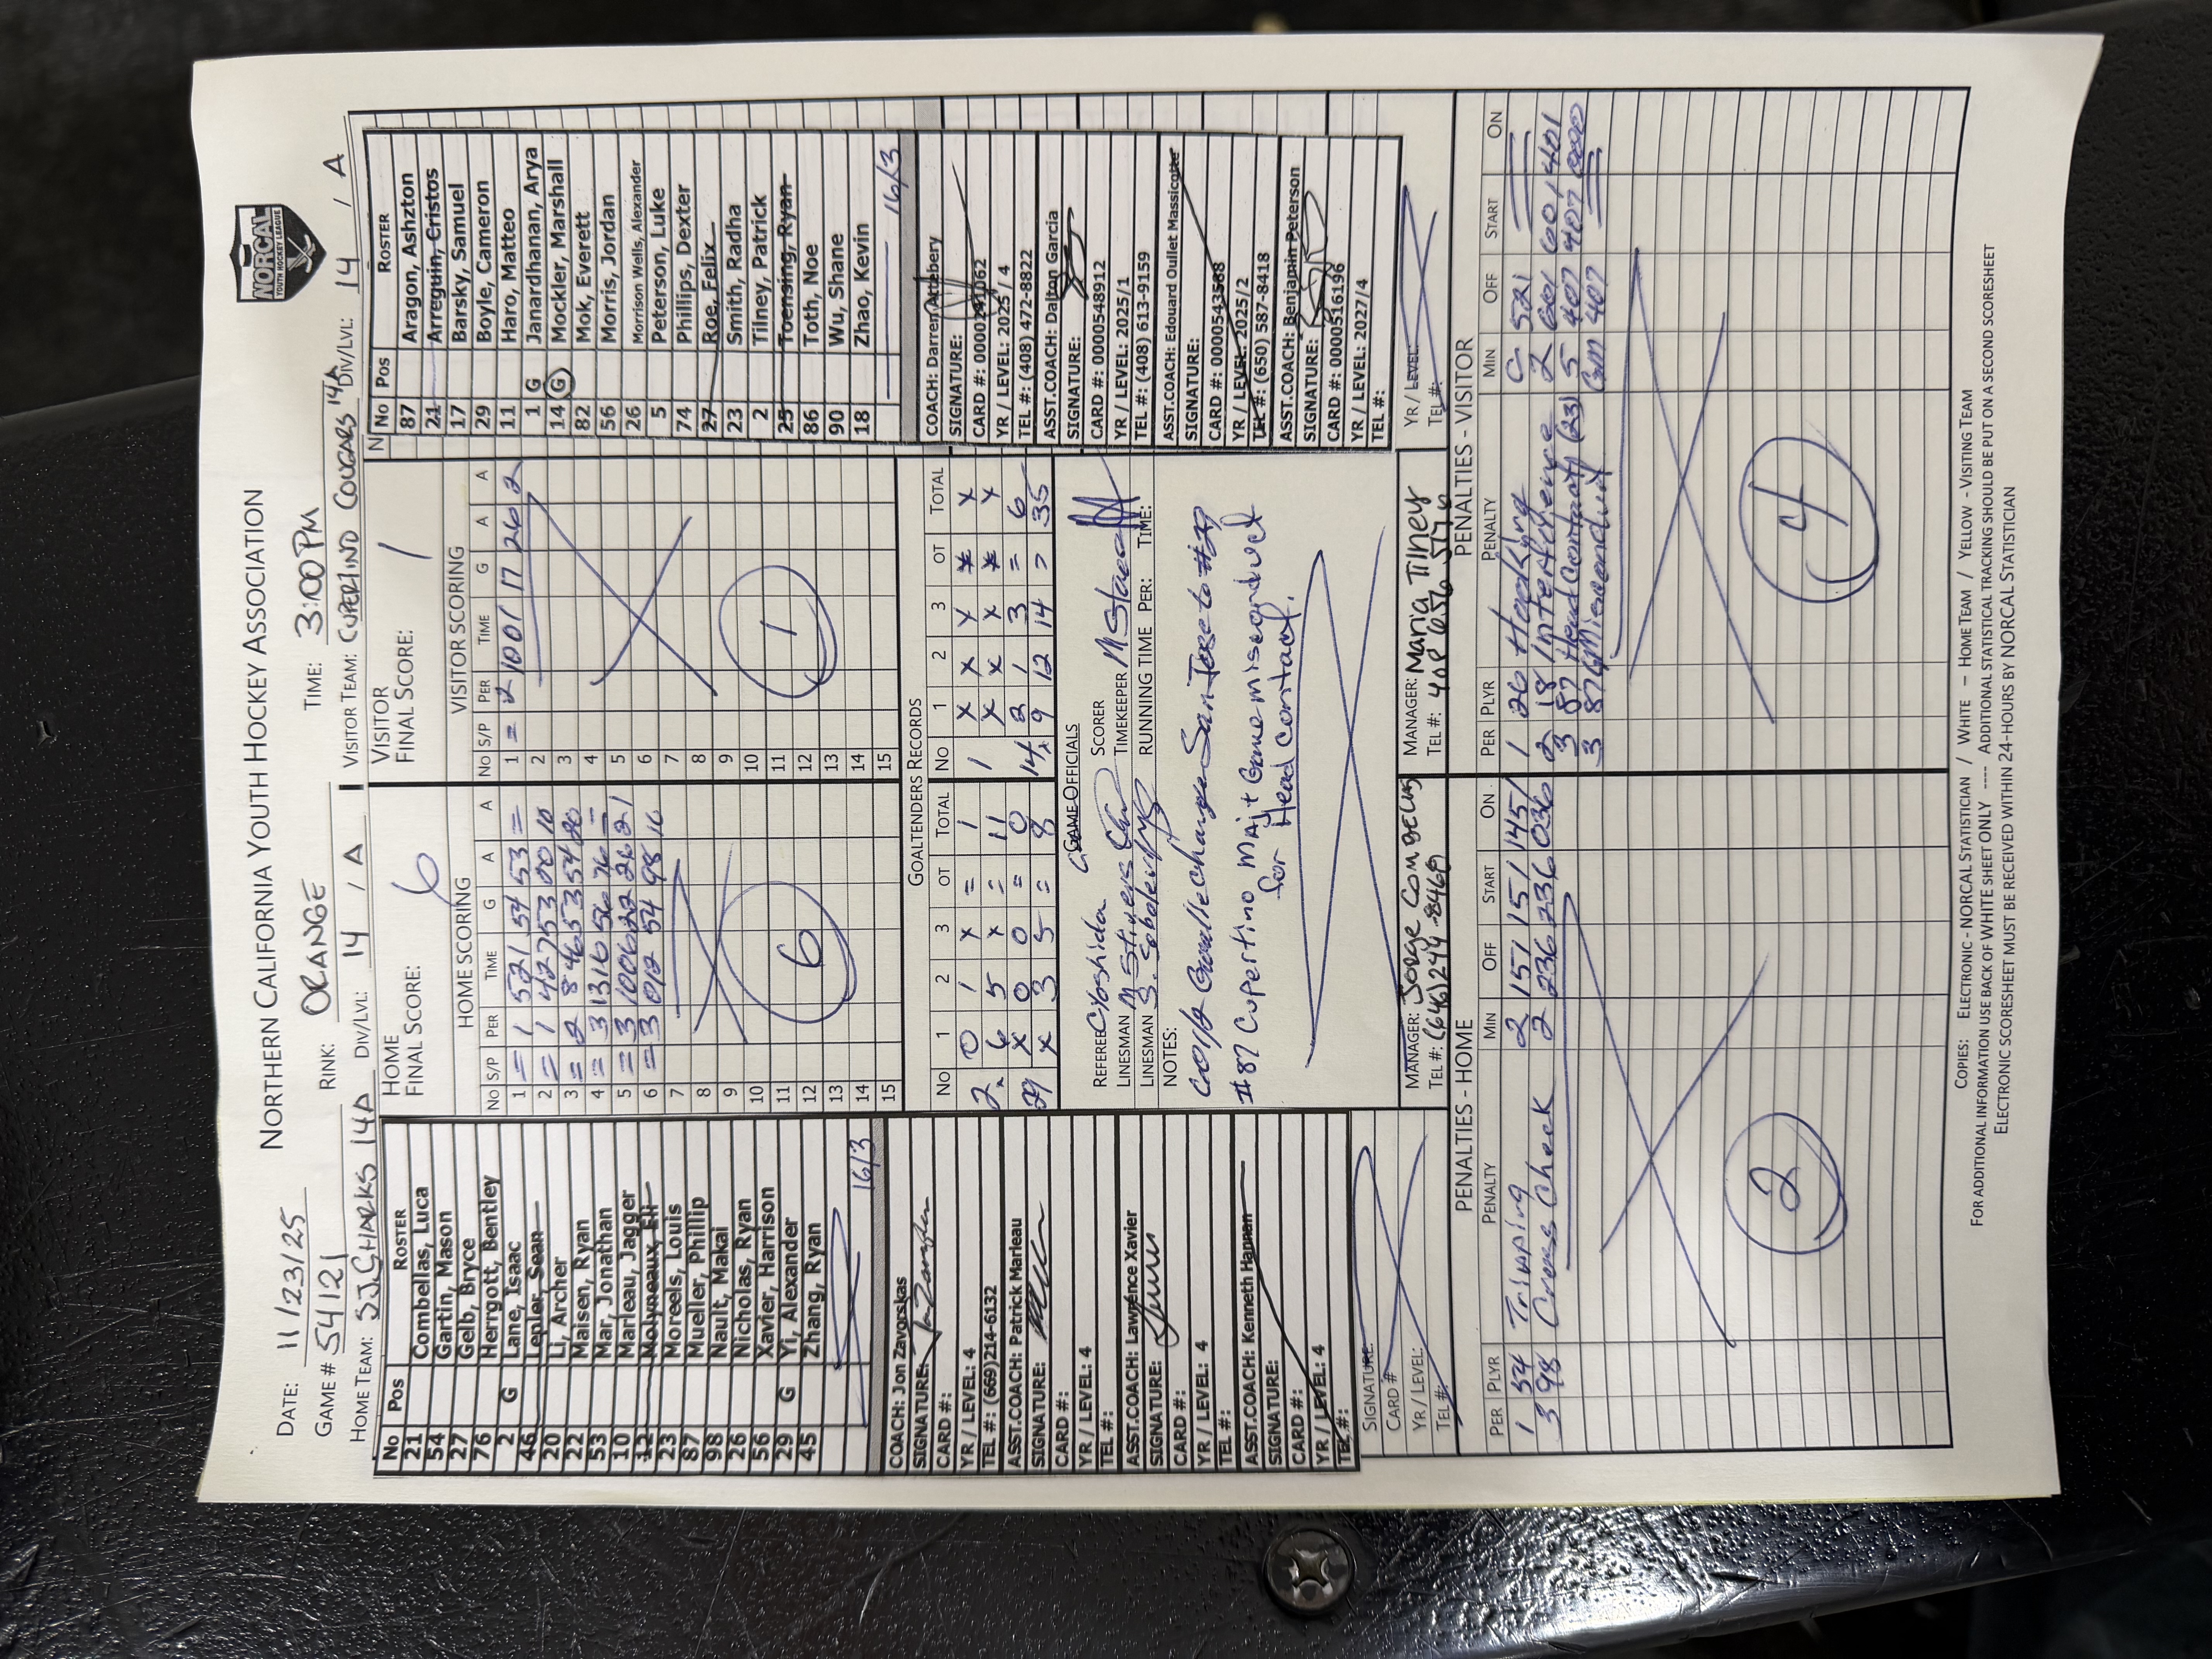 NORCAL
YOUTH HOCKEY LEAGUE
NORTHERN CALIFORNIA YOUTH HOCKEY ASSOCIATION
DATE: 11/23/25
GAME # 54121
RINK: ORANGE
TIME: 3:00 PM
HOME TEAM: SJ SHARKS 14A DIV/LVL: 14 / A
VISITOR TEAM: CUPERTINO COUGARS 14A DIV/LVL: 14 / A
No Pos ROSTER
21 Combellas, Luca
54 Gartin, Mason
27 Gelb, Bryce
76 Herrgott, Bentley
2 G Lane, Isaac
46 Lepler, Sean
20 Li, Archer
22 Maisen, Ryan
53 Mar, Jonathan
10 Marleau, Jagger
12 Molyneaux, Eli
23 Moreels, Louis
87 Mueller, Phillip
98 Nault, Makai
26 Nicholas, Ryan
56 Xavier, Harrison
29 G Yi, Alexander
45 Zhang, Ryan
16/3
COACH: Jon Zavorskas
SIGNATURE:
CARD #:
YR / LEVEL: 4
TEL #: (669)214-6132
ASST.COACH: Patrick Marleau
SIGNATURE:
CARD #:
YR / LEVEL: 4
TEL #:
ASST.COACH: Lawrence Xavier
SIGNATURE:
CARD #:
YR / LEVEL: 4
TEL #:
ASST.COACH: Kenneth Hannan
SIGNATURE:
CARD #:
YR / LEVEL: 4
TEL #:
SIGNATURE:
CARD #
YR / LEVEL:
TEL #:
HOME
FINAL SCORE: 6
HOME SCORING
No S/P PER TIME G A A
1 = 1 521 54 53 =
2 = 1 427 53 00 10
3 = 2 846 53 54 80
4 = 3 1316 56 76 =
5 = 3 1006 22 26 21
6 = 3 012 54 98 16
7
8
9
10
11
12
13
14
15
6
VISITOR
FINAL SCORE: 1
VISITOR SCORING
No S/P PER TIME G A A
1 = 2 1001 17 26 2
2
3
4
5
6
7
8
9
10
11
12
13
14
15
1
GOALTENDERS RECORDS
No 1 2 3 OT TOTAL No 1 2 3 OT TOTAL
2 0 1 x = 1 1 x x x x x
6 5 x = 11 x x x x x
29 x 0 0 = 0 14 2 1 3 = 6
x 3 5 = 8 9 12 14 = 35
GAME OFFICIALS
REFEREE C Yoshida SCORER
LINESMAN M Stivers TIMEKEEPER
LINESMAN S. RUNNING TIME PER: TIME:
NOTES:
Goalie change San Jose to #29
#87 Cupertino Maj + Game misconduct
for Head contact.
MANAGER: Jorge Combellas
TEL #: (646)244-8460
MANAGER: Maria Tilney
TEL #: 408 656 5776
No Pos ROSTER
87 Aragon, Ashzton
21 Arreguin, Cristos
17 Barsky, Samuel
29 Boyle, Cameron
11 Haro, Matteo
1 G Janardhanan, Arya
14 G Mockler, Marshall
82 Mok, Everett
56 Morris, Jordan
26 Morrison Wells, Alexander
5 Peterson, Luke
74 Phillips, Dexter
27 Roe, Felix
23 Smith, Radha
2 Tilney, Patrick
25 Toensing, Ryan
86 Toth, Noe
90 Wu, Shane
18 Zhao, Kevin
16/3
COACH: Darren Attebery
SIGNATURE:
CARD #: 0000241062
YR / LEVEL: 2025 / 4
TEL #: (408) 472-8822
ASST.COACH: Dalton Garcia
SIGNATURE:
CARD #: 0000548912
YR / LEVEL: 2025/1
TEL #: (408) 613-9159
ASST.COACH: Edouard Oullet Massicotte
SIGNATURE:
CARD #: 0000543588
YR / LEVEL: 2025/2
TEL #: (650) 587-8418
ASST.COACH: Benjamin Peterson
SIGNATURE:
CARD #: 0000516196
YR / LEVEL: 2027/4
TEL #:
YR / LEVEL:
TEL #:
PENALTIES - HOME
PER PLYR PENALTY MIN OFF START ON
1 54 Tripping 2 157 151 1451
3 98 Cross Check 2 236 236 036
2
PENALTIES - VISITOR
PER PLYR PENALTY MIN OFF START ON
1 26 Hooking 521
2 18 Interference 2 601 601 401
3 87 Head Contact (23) 5 407 407
3 87 G Misconduct GM 407
4
COPIES: ELECTRONIC - NORCAL STATISTICIAN / WHITE – HOME TEAM / YELLOW - VISITING TEAM
FOR ADDITIONAL INFORMATION USE BACK OF WHITE SHEET ONLY ---- ADDITIONAL STATISTICAL TRACKING SHOULD BE PUT ON A SECOND SCORESHEET
ELECTRONIC SCORESHEET MUST BE RECEIVED WITHIN 24-HOURS BY NORCAL STATISTICIAN